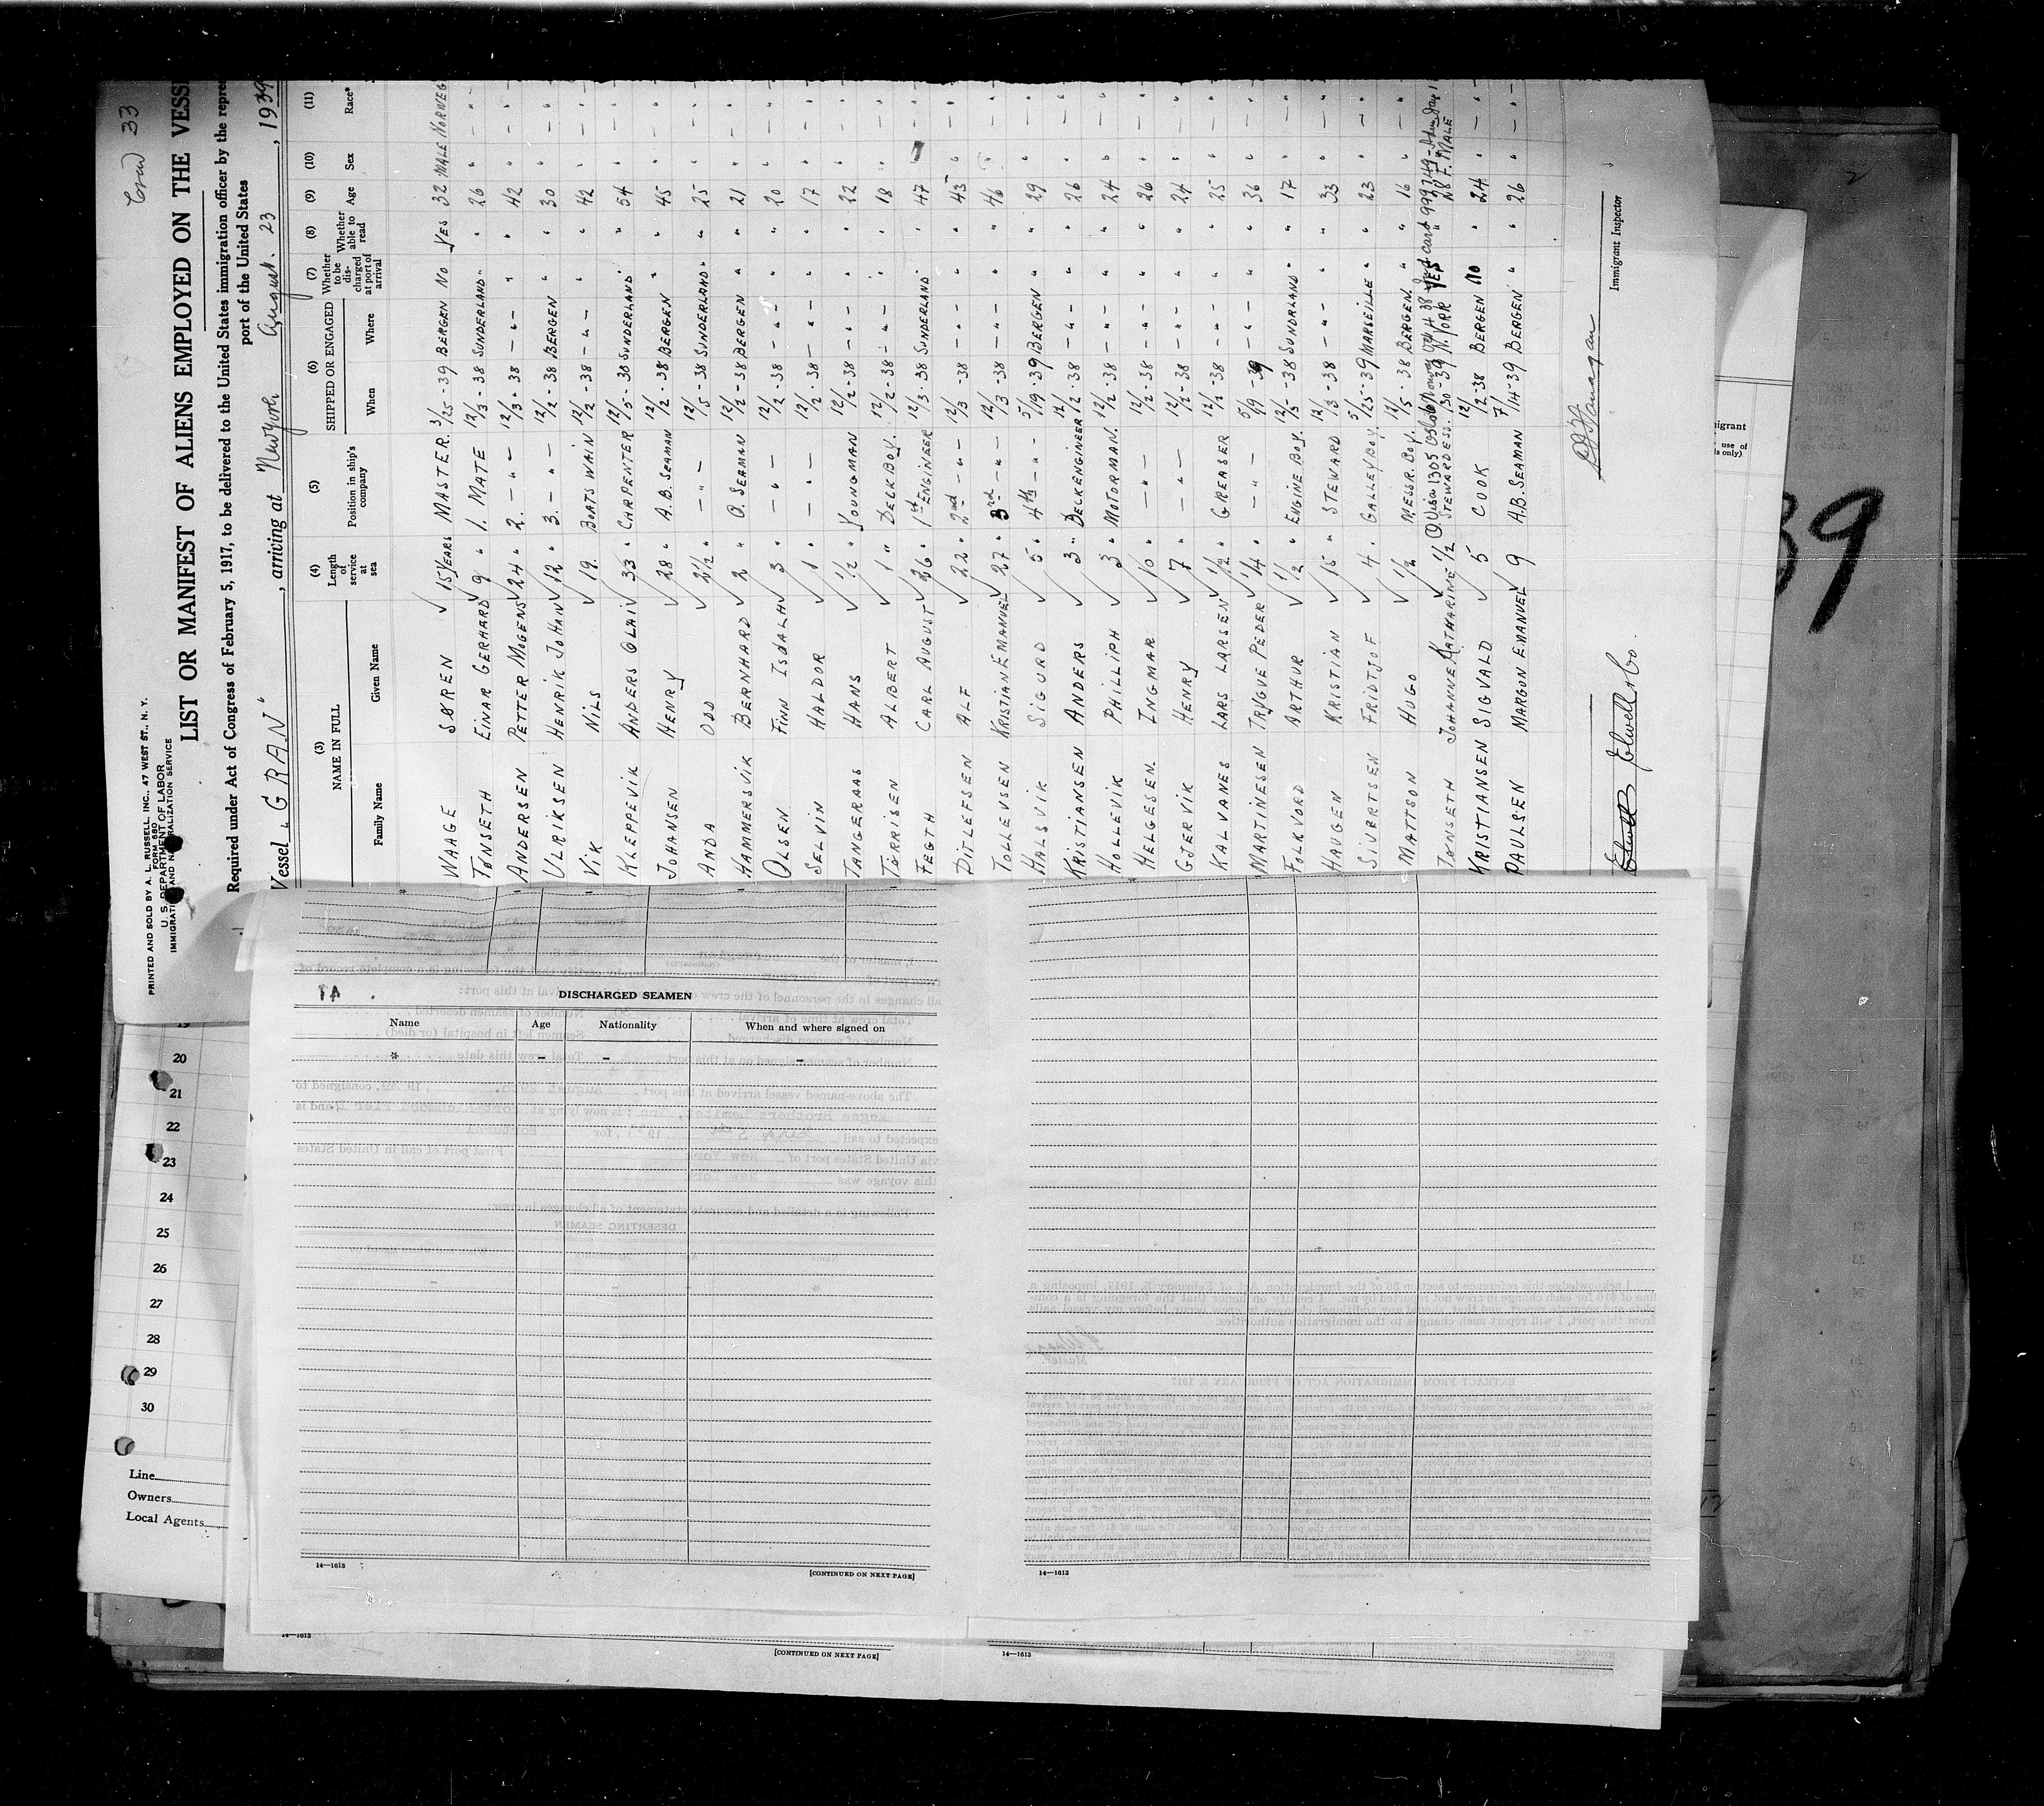 Crew 33
PRINTED AND SOLD BY A. L. RUSSELL, INC., 47 WEST ST., N. Y.
FORM 680
U. S. DEPARTMENT OF LABOR
IMMIGRATION AND NATURALIZATION SERVICE
LIST OR MANIFEST OF ALIENS EMPLOYED ON THE VESS
Required under Act of Congress of February 5, 1917, to be delivered to the United States immigration officer by the repre
port of the United States
Vessel "GRAN" , arriving at New York August. 23 , 1939
(3) (4) (5) (6) (7) (8) (9) (10) (11)
NAME IN FULL Length of service at sea Position in ship's company SHIPPED OR ENGAGED Whether to be discharged at port of arrival Whether able to read Age Sex Race*
Family Name Given Name When Where
WAAGE SØREN √ 15 YEARS MASTER. 3/25-39 BERGEN NO YES 32 MALE NORWEG
TØNSETH EINAR GERHARD √ 9 " 1. MATE 12/3-38 SUNDERLAND " " 26 " — " —
ANDERSEN PETTER MOGENS √ 24 " 2. — " — 12/3-38 — " — " " 42 " — " —
ULRIKSEN HENRIK JOHAN √ 12 " 3. — " — 12/2-38 BERGEN " " 30 " — " —
VIK NILS √ 19. BOATSWAIN 12/2-38 — " — " " 42 " — " —
KLEPPEVIK ANDERS OLAI √ 33 " CARPENTER 12/5-38 SUNDERLAND " " 54 " — " —
JOHANSEN HENRY √ 28 " A.B. SEAMAN 12/2-38 BERGEN " " 45 " — " —
ANDA ODD √ 2 1/2 " — " — 12/5-38 SUNDERLAND " " 25 " — " —
HAMMERSVIK BERNHARD √ 2 " O. SEAMAN 12/2-38 BERGEN " " 21 " — " —
OLSEN FINN ISDALH √ 3 " — " — 12/2-38 — " — " " 20 " — " —
SELVIN HALDOR √ 1 " — " — 12/2-38 — " — " " 17 " — " —
TANGERAAS HANS √ 1/2 " YOUNGMAN 12/2-38 — " — " " 22 " — " —
TØRRISEN ALBERT √ 1 " DECKBOY. 12/2-38 — " — " " 18 " — " —
FEGTH CARL AUGUST √ 26 " 1st ENGINEER 12/3-38 SUNDERLAND " " 47 — " —
DITLEFSEN ALF √ 22 " 2nd — " — 12/3-38 — " — " " 43 " — " —
TOLLEVSEN KRISTIAN EMANUEL √ 27 " 3rd — " — 12/3-38 — " — " " 46 " — " —
HALSVIK SIGURD √ 5 " 4th — " — 5/19-39 BERGEN " " 29 " — " —
KRISTIANSEN ANDERS √ 3 " DECKENGINEER 12/2-38 — " — " " 26 " — " —
HOLLEVIK PHILLIPH √ 3 " MOTORMAN. 12/2-38 — " — " " 24 " — " —
HELGESEN. INGMAR √ 10 " — " — 12/2-38 — " — " " 26 " — " —
GJERVIK HENRY √ 7 " — " — 12/2-38 — " — " " 24 " — " —
KALVANES LARS LARSEN √ 1/2 " GREASER 12/2-38 — " — " " 25 " — " —
MARTINESEN TRYGVE PEDER √ 1/4 " — " — 5/19-39 — " — " " 36 " — " —
FOLKVORD ARTHUR √ 1/2 " ENGINE BOY. 12/5-38 SUNDRLAND " " 17 " — " —
HAUGEN KRISTIAN √ 15 " STEWARD 12/3-38 — " — " " 33 " — " —
SIVERTSEN FRIDTJOF √ 4 . GALLEYBOY. 5/25-39 MARSEILLE " " 23 " — " —
MATTSON HUGO √ 1/2 MESSR. BOY. 12/5-38 BERGEN. " " 16 " — " —
TØNSETH JOHANNE KATHARINE 1/2 STEWARDESS. /30-39 N. YORK YES " 28 F. MALE
KRISTIANSEN SIGVALD √ 5 COOK 12/2-38 BERGEN NO " 24 " — " —
PAULSEN MARGON EMANUEL √ 9 A.B. SEAMAN 7/14-39 BERGEN " " 26 " — " —
Elwell & Co.
Immigrant Inspector
migrant
use of
ls only)
39
20
21
22
23
24
25
26
27
28
29
30
Line
Owners
Local Agents
41
DISCHARGED SEAMEN
Name Age Nationality When and where signed on
* – – –
14—1613
[CONTINUED ON NEXT PAGE]
14—1613
14—1613
[CONTINUED ON NEXT PAGE]
14—1613